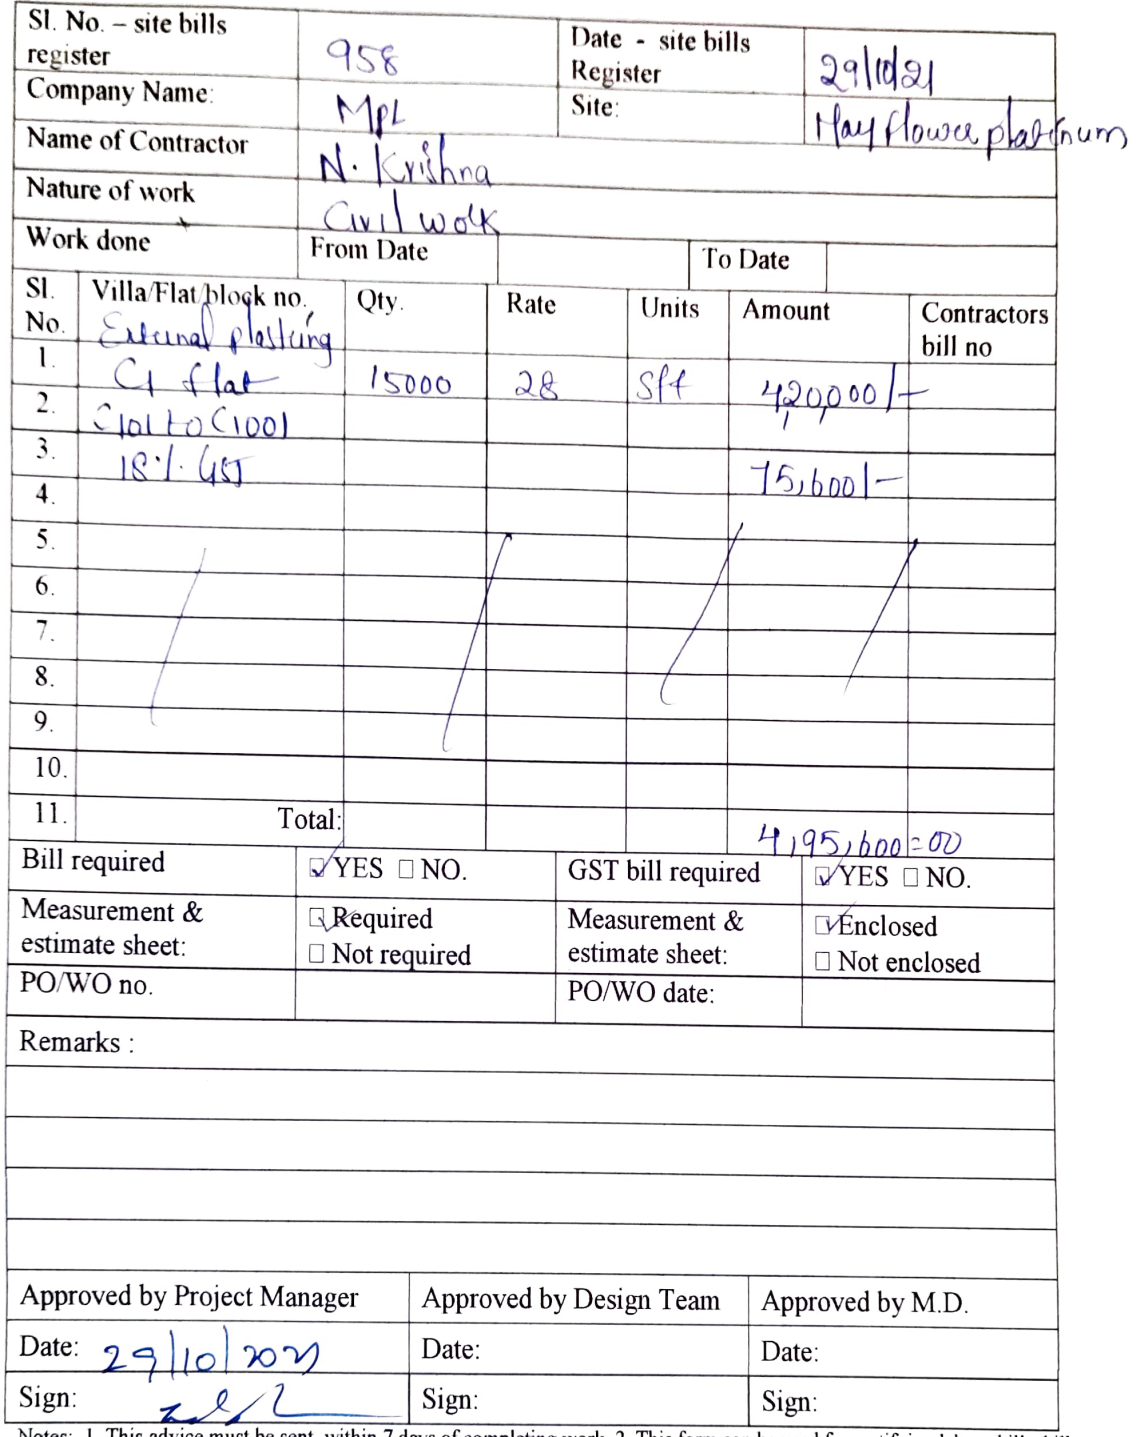 Sl. No. – site bills register 958 Date - site bills Register 29/10/21
Company Name: MPL Site: Mayflower platinum
Name of Contractor N. Krishna
Nature of work Civil work
Work done From Date To Date
Sl. No. Villa/Flat/block no. Qty. Rate Units Amount Contractors bill no
External plastring
1. C1 flat 15000 28 Sft 420,000/-
2. C101 to C1001
3. 18% GST 75,600/-
4.
5.
6.
7.
8.
9.
10.
11. Total: 4,95,600=00
Bill required ☑ YES ☐ NO. GST bill required ☑ YES ☐ NO.
Measurement & estimate sheet: ☑ Required Measurement & estimate sheet: ☑ Enclosed
☐ Not required ☐ Not enclosed
PO/WO no. PO/WO date:
Remarks :
Approved by Project Manager Approved by Design Team Approved by M.D.
Date: 29/10/2021 Date: Date:
Sign: Sign: Sign: